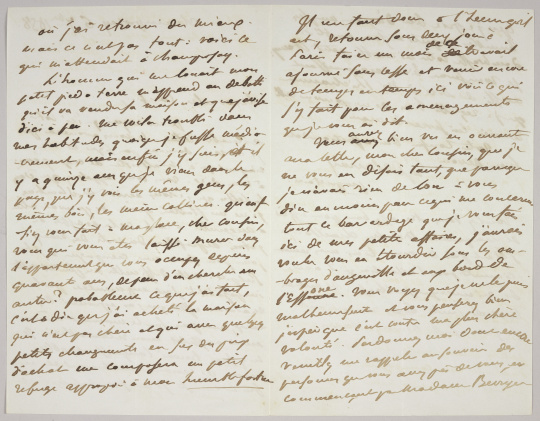 où j'ai retrouvé du mieux.
mais ce n'est pas tout : voici ce
qui m'attendait à champrosay.
L'homme qui me louait mon
petit pied à terre m'apprend en débotté
qu'il va vendre sa maison et que j'avise
d'ici à peu. me voilà troublé dans
mes habitudes quoique je fusse médio-
crement, mais enfin j'y suis, et il
y a quinze ans que je viens dans le
pays, que j'y vois les mêmes gens, les
mêmes bois, les mêmes collines. qu'auriez
vous fait à ma place, cher cousin,
vous qui vous êtes laissé murer dans
l'appartement que vous occupez depuis
quarante ans, de peur d'en chercher un
autre ? probablement ce que j'ai fait,
c'est à dire que j'ai acheté la maison
qui n'est pas chère et qui avec quelques
petits changements en sus du prix
d'achat me composera un petit
refuge approprié à mon humble fortune
Il me faut donc à l'heure qu'il
est, retourner sous deux jours à
Paris faire un mois de travail
ajourné sans cesse et venir encore
de temps en temps ici voir ce qui
s'y fait pour les aménagements
que je vous ai dit.
Vous aurez bien vu en ouvrant
cette lettre, mon cher cousin, que je
ne vous en disais tant, que parce que
je n'avais rien de bon à vous
dire au moins pour ce qui me concerne
tout ce bavardage que je vous fais
ici de mes petites affaires, j'aurais
voulu vous en étourdir sous les om-
brages d'augerville et aux bords de
l'Essonne. Vous voyez que je ne le puis
malheureusement et vous penserez bien
j'espère que c'est contre ma plus chère
volonté. Pardonnez moi donc encore
veuillez me rappeler au souvenir des
personnes que vous avez près de vous, en
commençant par Madame Berryer